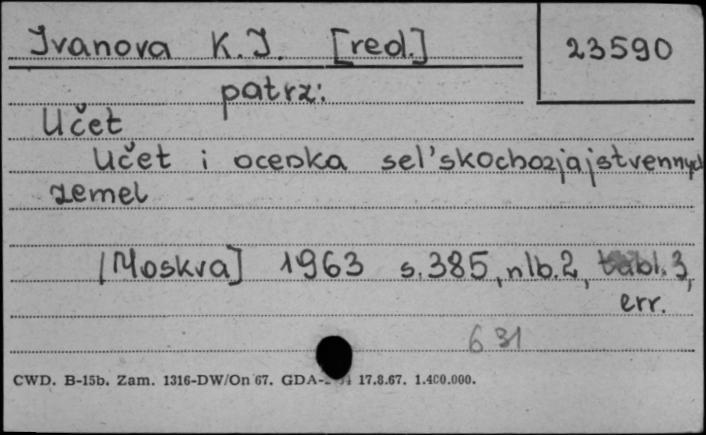 Ivanova K.I. [red.]
23590
patrz:
Učet
Učet i ocenka sel'skochozjajstvennych
zemel
[Moskva] 1963 s.385, nlb.2, tabl.3,
err.
631
CWD. B-15b. Zam. 1316-DW/On 67. GDA- 17.8.67. 1.400.000.